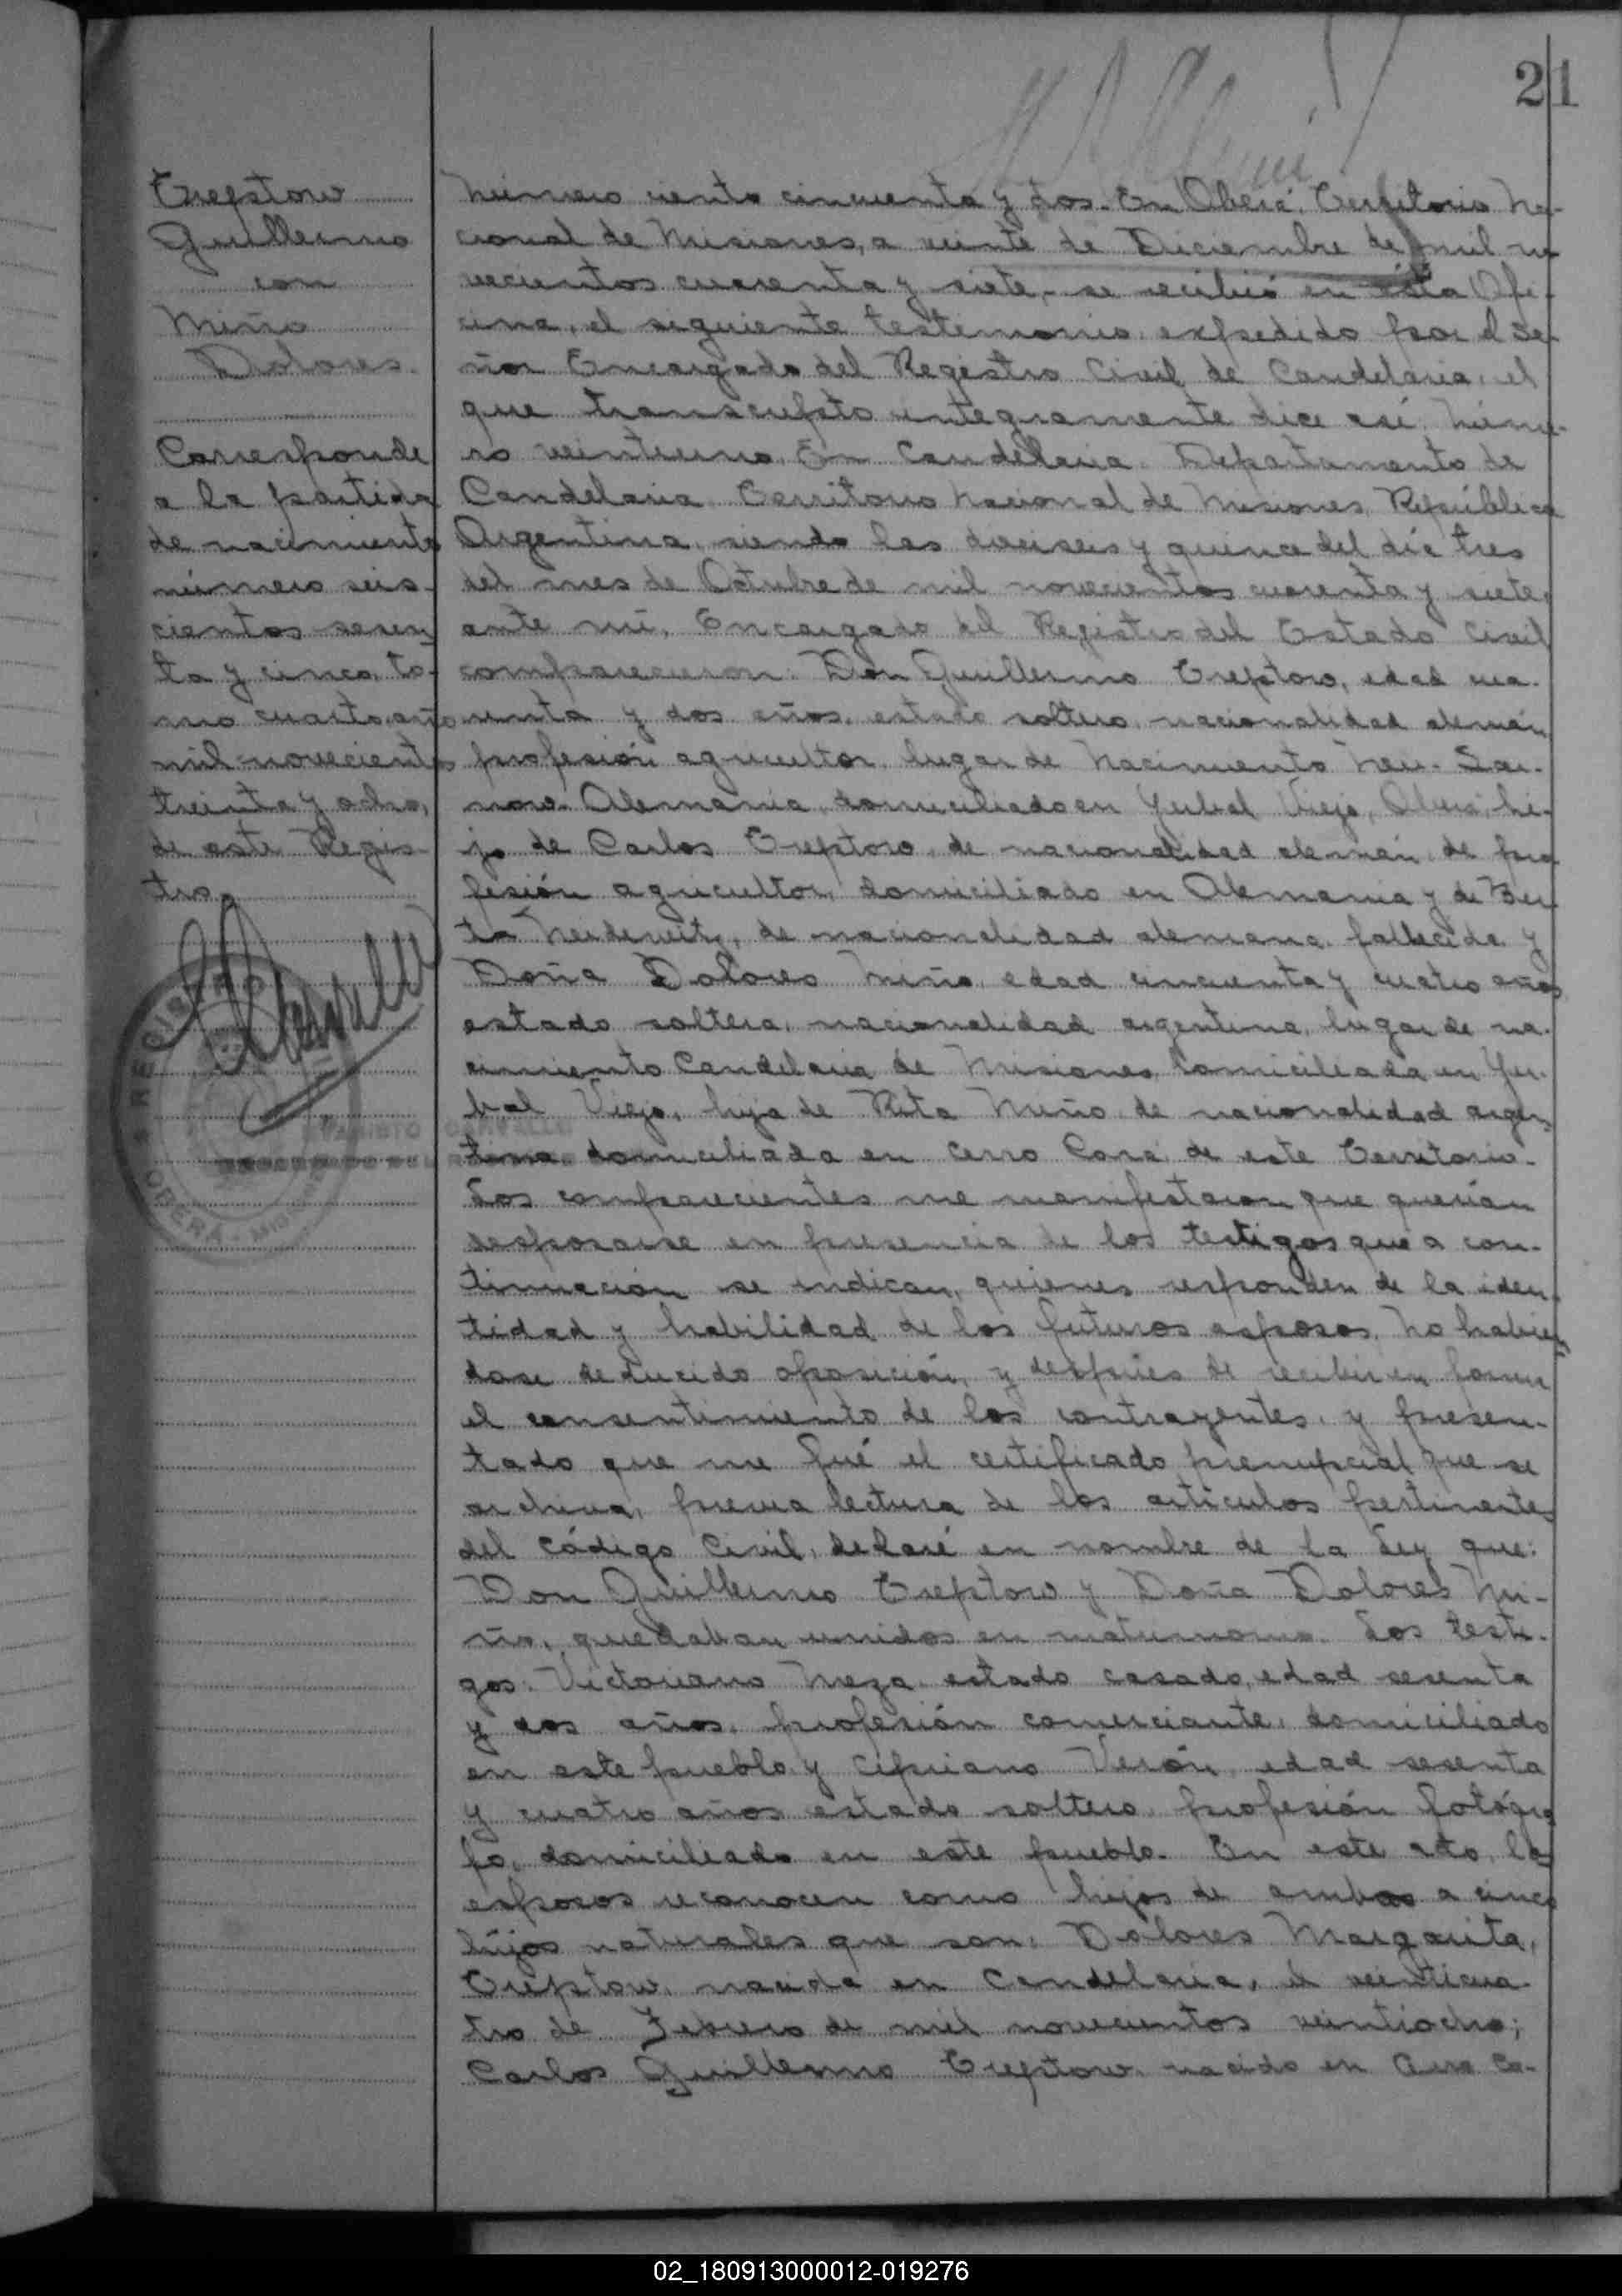 21
Treptow
Guillermo
con
Miño
Dolores.
Corresponde
a la partida
de nacimiento
número seis-
cientos sesen
ta y cinco, to-
mo cuarto, año
mil novecientos
treinta y ocho,
de este Regis-
tro.
REGISTRO
OBERÁ - MIS
CARVALLO
Número ciento cincuenta y dos. En Oberá, Territorio Na-
cional de Misiones, a veinte de Diciembre de mil no
vecientos cuarenta y siete, se recibió en ésta Ofi-
cina, el siguiente testimonio expedido por el Se-
ñor Encargado del Registro Civil de Candelaria, el
que transcripto integramente dice así: Núme-
ro veintiuno. En Candelaria Departamento de
Candelaria Territorio Nacional de Misiones, República
Argentina, siendo las dieciseis y quince del día tres
del mes de Octubre de mil novecientos cuarenta y siete,
ante mí, Encargado del Registro del Estado Civil
comparecieron: Don Guillermo Treptow, edad cua-
renta y dos años, estado soltero, nacionalidad alemán
profesión agricultor, lugar de Nacimiento Neu-
Alemania, domiciliado en Yerbal Viejo, Oberá, hi-
jo de Carlos Treptow, de nacionalidad alemán, de pro
fesión agricultor, domiciliado en Alemania y de Ber
ta de nacionalidad alemana, fallecida y
Doña Dolores Miño, edad cincuenta y cuatro años
estado soltera, nacionalidad argentina, lugar de na-
cimiento Candelaria de Misiones, domiciliada en Yer-
bal Viejo, hija de Rita Miño, de nacionalidad argen
tina domiciliada en Cerro Corá, de este Territorio.
Los comparecientes me manifestaron que querían
desposarse en presencia de los testigos que a con-
tinuación se indican, quienes responden de la iden-
tidad y habilidad de los futuros esposos, No habien
dose deducido oposición, y después de recibir en forma
el consentimiento de los contrayentes, y presen-
tado que me fué el certificado prenupcial que se
archiva, previa lectura de los artículos pertinentes
del Código Civil, declaré en nombre de la Ley que:
Don Guillermo Treptow y Doña Dolores Mi-
ño, quedaban unidos en matrimonio. Los testi-
gos: Victoriano Meza, estado casado, edad sesenta
y dos años, profesión comerciante, domiciliado
en este pueblo y Cipriano Verón, edad sesenta
y cuatro años estado soltero, profesión fotógra
fo, domiciliado en este pueblo. En este acto, los
esposos reconocen como hijos de ambos a cinco
hijos naturales que son: Dolores Margarita,
Treptow, nacida en Candelaria, el veinticua-
tro de Febrero de mil novecientos veintiocho;
Carlos Guillermo Treptow, nacido en Cerro Co-
02_180913000012-019276